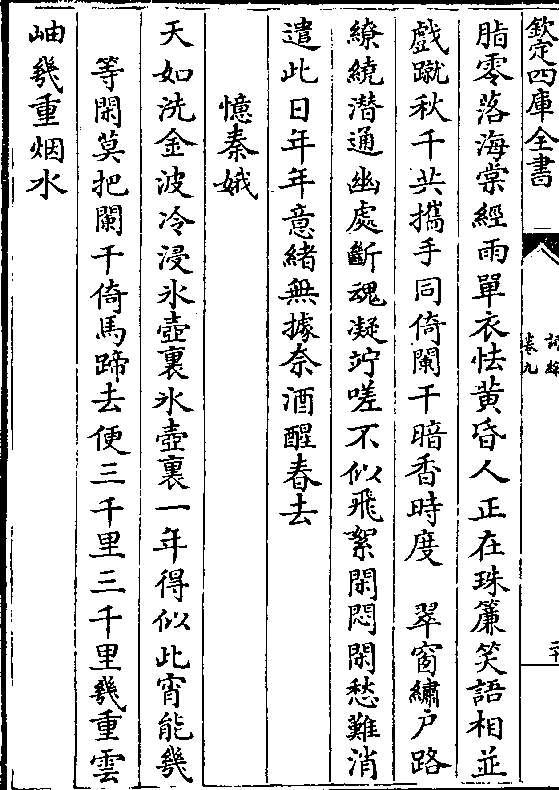 欽定四庫全書
詞綜
卷九
二十
脂零落海棠經雨單衣怯黄昏人正在珠簾笑語相並
戲蹴秋千共攜手同倚闌干暗香時度 翠窗繡戸路
繚繞潜通幽處斷魂凝竚嗟不似飛絮閑悶閑愁難消
遣此日年年意緒無據奈酒醒春去
憶秦娥
天如洗金波冷浸氷壺裏氷壺裏一年得似此宵能幾
等閑莫把闌干倚馬蹄去便三千里三千里幾重雲
岫幾重烟水